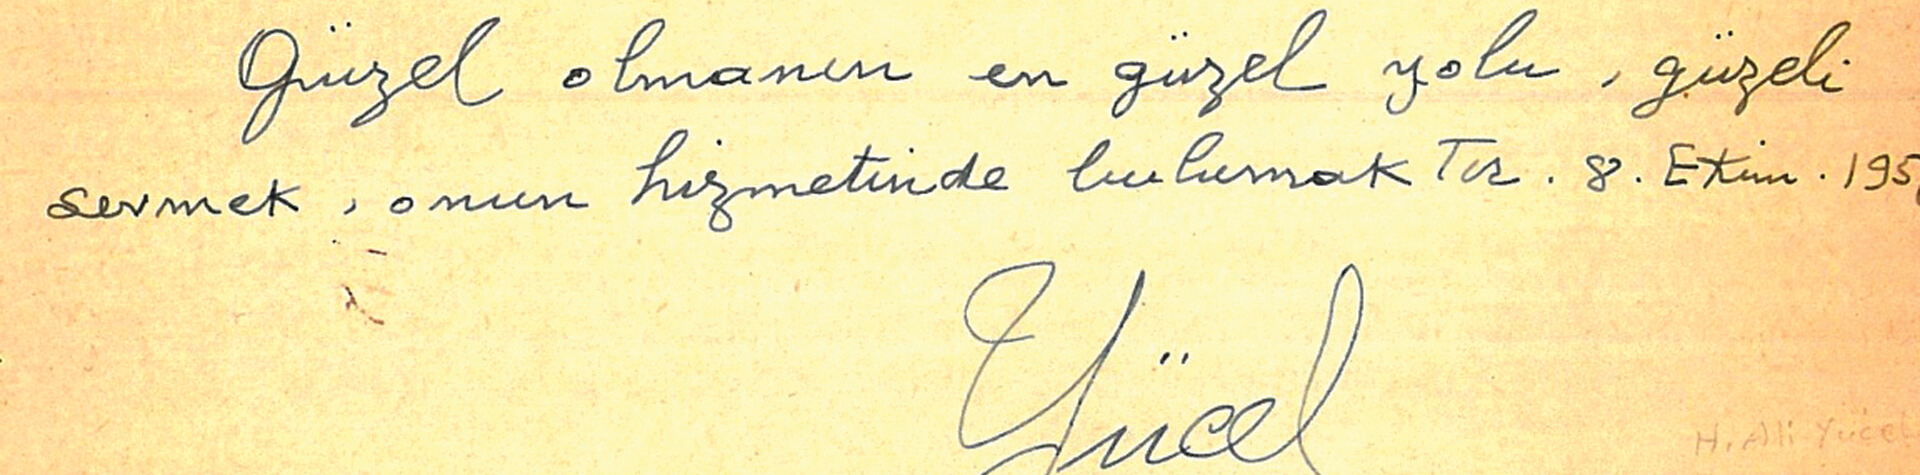 Güzel olmanın en güzel yolu, güzeli
sevmek, onun hizmetinde bulunmak Tır. 8. Ekim. 195
Yücel
H. Ali Yücel